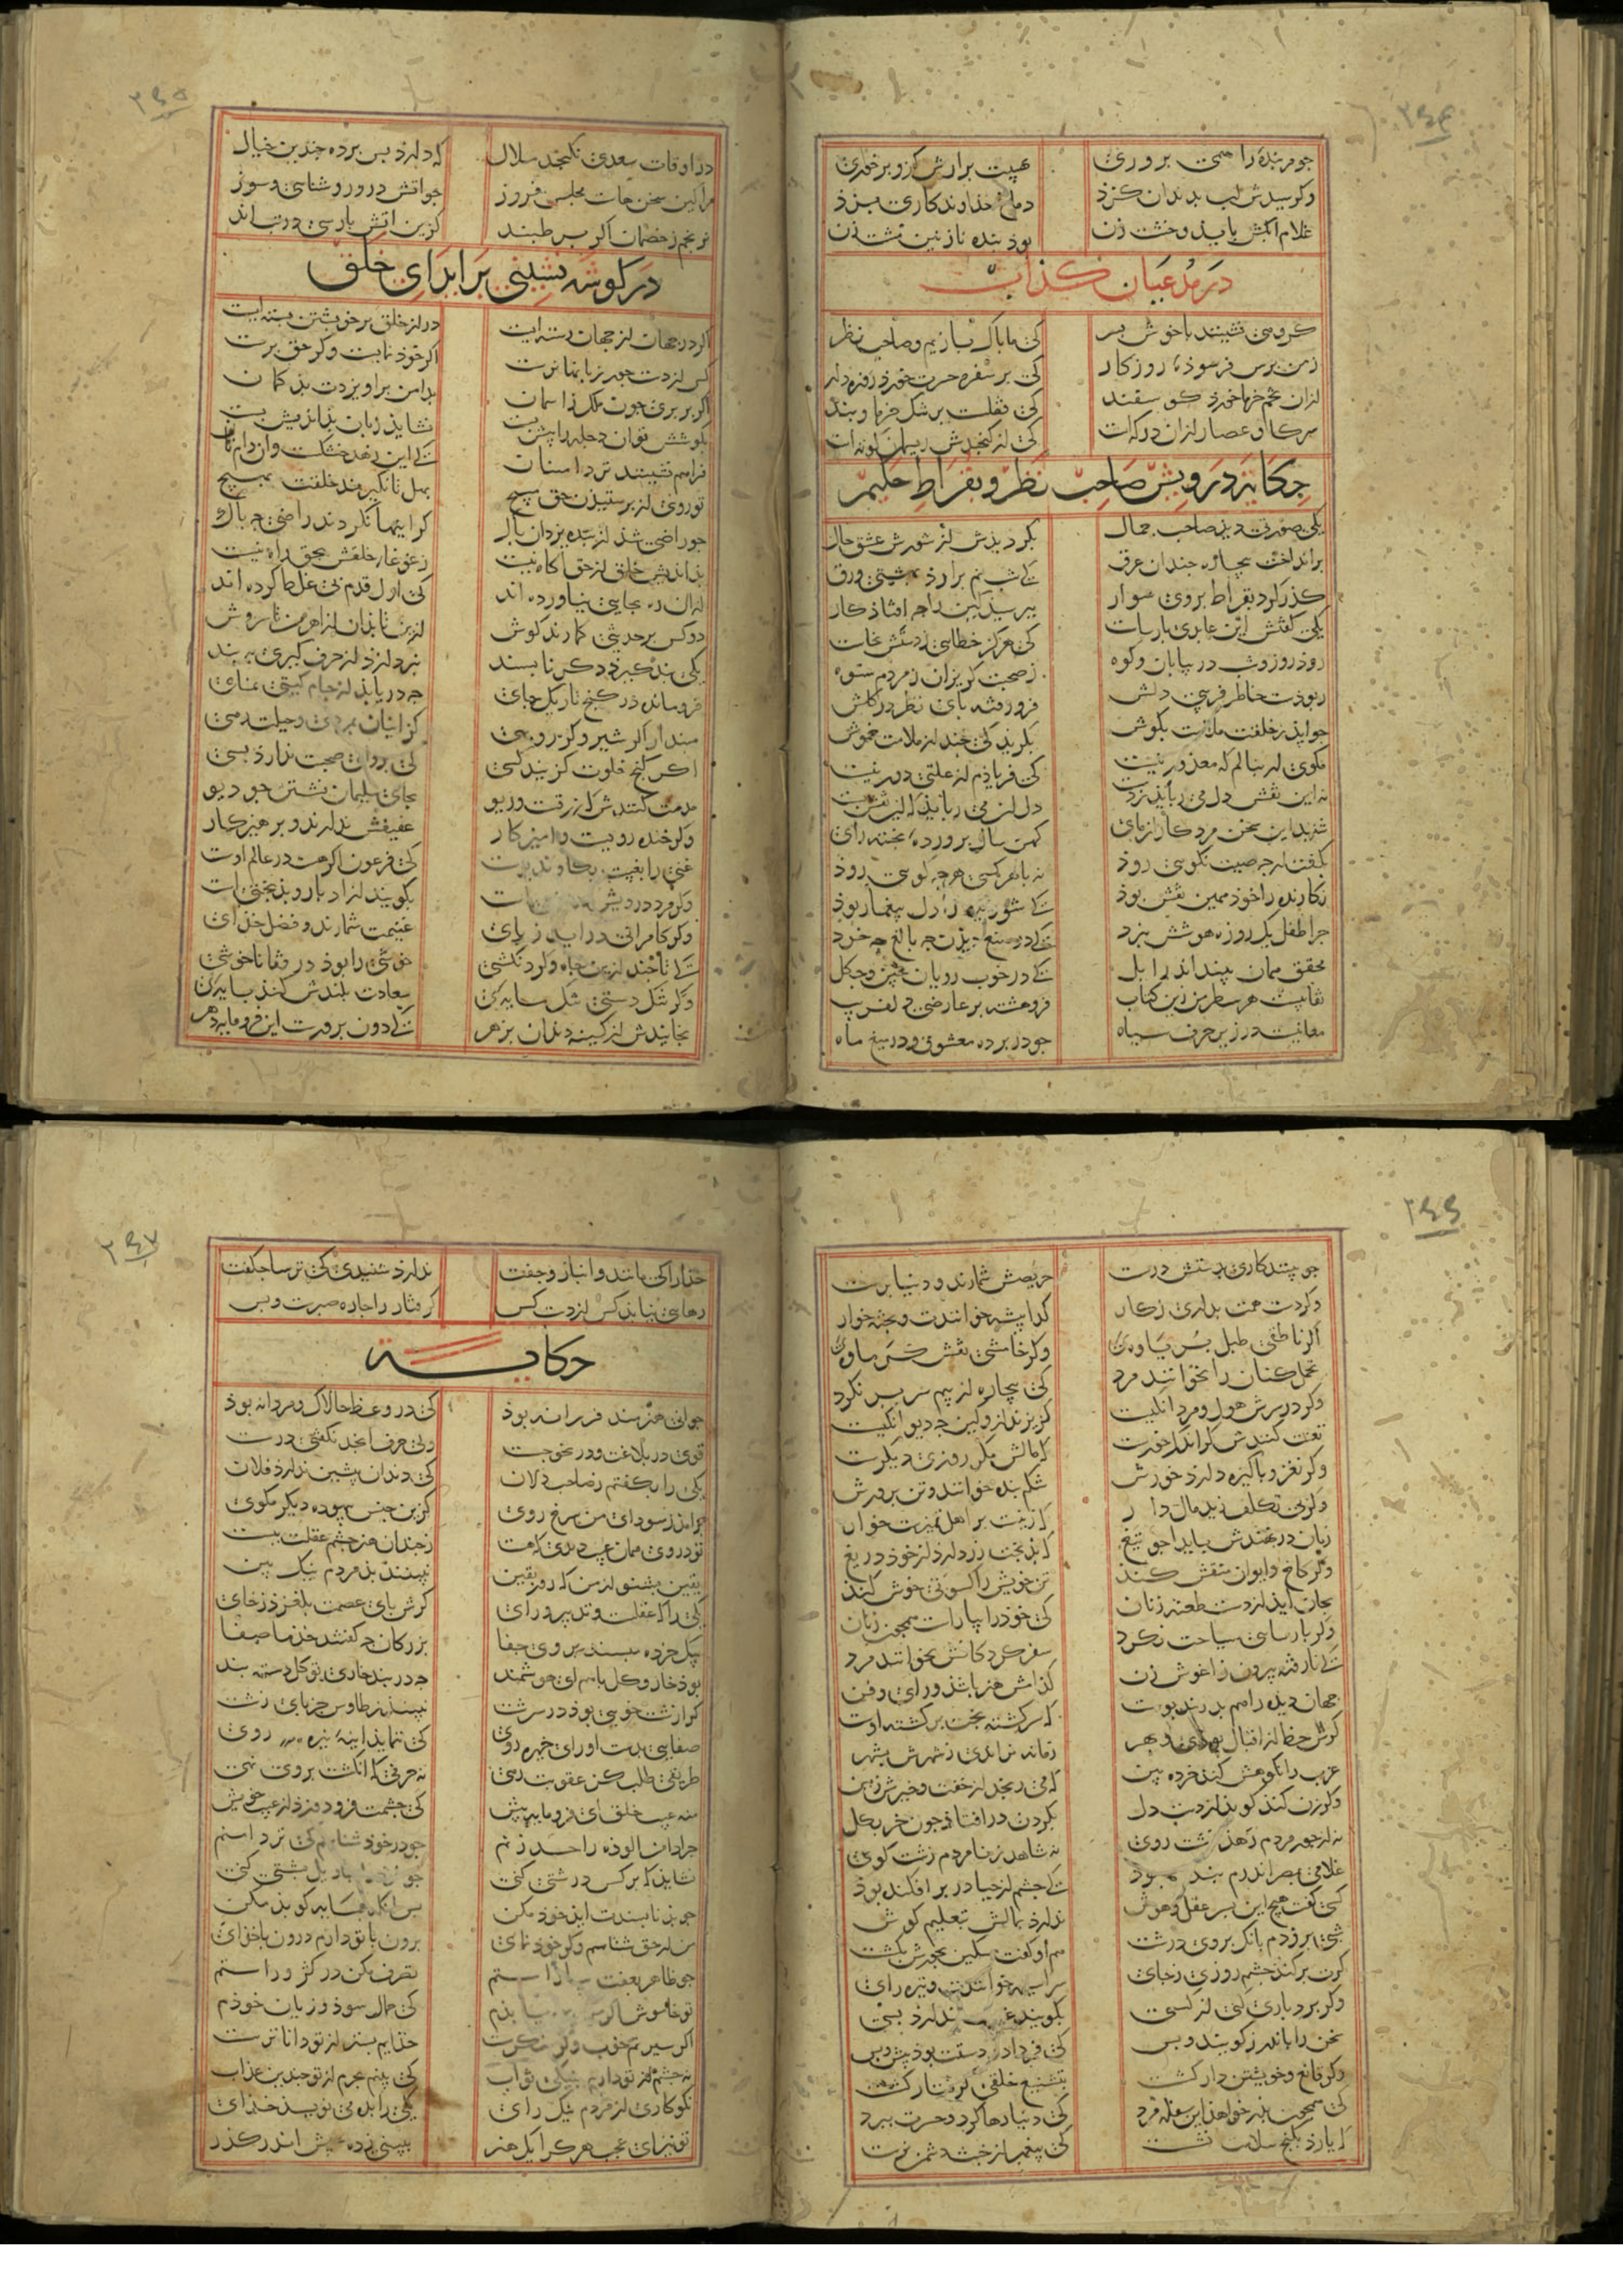 ۳۶۴
جو مر بنده را همی بروری هیبت برارش کزو برخوری
وکر سیدش لب بدندان کزد دماغ خذاوندکاری بزذ
غلام ابکش بایذ و خشت زن بوذ بنده نازنین مشت زن
در مدعیان کذاب
کروهی نشینند با خوش بسر کی ما باک بازیم و صاحب نظر
زمن برس فرسوذه روزکار کی بر سفره حسرت خورذ روزه دار
ازان تخم خرما خورذ کوسفند کی قفلست بر تنک خرما و بند
سر کاو عصار ازان در کهست کی از کنجدش ریسمان کوتهست
حکایة درویش صاحب نظر و بقراط حکیم
یکی صورتی دیذ صاحب جمال بکردیدش از شورش عشق حال
برانداخت بیچاره جندان عرق کی شبنم برارذ بهشتی ورق
کذر کرد بقراط بروی سوار ببرسید کین را جه افتاذ کار
یکی کفتش این عابدی بارساست کی هرکز خطایی ز دستش نخاست
روذ روز و شب در بیابان و کوه ز صحبت کریزان ز مردم ستوه
ربوذست خاطر فریبی دلش فرو رفته بای نظر در کلش
جو ایذ ز خلقش ملامت بکوش بکریذ کی جند از ملامت خموش
مکوی ار بنالم که معذور نیست کی فریاذم از علتی دور نیست
نه این نقش دل می ربایذ ز دست دل ان می ربایذ که این نقش بست
شنید این سخن مرد کار ازمای کهن سال برورده بخته رای
بکفت ار جه صیت نکویی روذ نه با هر کسی هر جه کویی روذ
نکارنده را خوذ همین نقش بوذ کی شوریده را دل بیغما ربوذ
جرا طفل یک روزه هوشش نبرد کی در صنع دیذن جه بالغ جه خرد
محقق همان بیند اندر ابل کی در خوب رویان جین و جکل
نقابیست هر سطر من زین کتاب فرو هشته بر عارضی دلفریب
معانیست در زیر حرف سیاه جو در برده معشوق و در میغ ماه
۳۶۵
در اوقات سعدی نکنجد ملال که دارذ بس برده جندین خیال
مرا کین سخن هات مجلس فروز جو اتش درو روشنای و سوز
نرنجم ز خصمان اکر بر طبند کزین اتش بارسی در تباند
در کوشه نشینی بر ابرای خلق
اکر در جهان از جهان رسته ایست در از خلق بر خویشتن بسته ایست
کس از دست جور زبانها نرست اکر خوذ نمایست و کر حق برست
اکر بر بری جون ملک ز اسمان بدامن در اویزدت بذ کمان
بکوشش توان دجله را پیش بست نشایذ زبان بذاندیش بست
فراهم نشینند تر دامنان کی این زهد خشکست و ان دام نان
تو روی از برستیذن حق مبیج بهل تا نکیرند خلقت بهیج
جو راضی شذ از بنده یزدان باک کر اینها نکردند راضی جه باک
بذاندیش خلق از حق اکاه نیست ز غوغاء خلقش بحق راه نیست
ازان ره بجایی نیاورده اند کی اول قدم بی غلط کرده اند
دو کس بر حدیثی کمارند کوش ازین تا بذان ز اهرمن تا سروش
یکی بند کیرذ دکر نابسند نبردازذ از حرف کیری به بند
فرو مانده در کنج تاریک جای جه دریابذ از جام کیتی نمای
مبندار اکر شیر و کر روبهی کز اینان بمردی و حیلت رهی
اکر کنج خلوت کزیند کسی کی بروای صحبت ندارذ بسی
مذمت کنندش که زرقست و ریو بجای سلیمان نشستن جو دیو
وکر خنده رویست و امیزکار عفیفش ندارند و برهیزکار
غنی را بغیبت بکاوند بوست کی فرعون اکر هست در عالم اوست
بکویند از ادبار و بذبختی است
وکر کامرانی در اید ز بای غنیمت شمارند و فضل خذای
کی تا جند ازین جاه و کردنکشی خوشی را بوذ در قفا ناخوشی
وکر تنک دستی تنک مایه ای سعادت بلندش کنذ بایه ای
بخایندش از کینه دندان بزهر کی دون برورست این فرومایه دهر
۳۶۶
جو بینند کاری بدستت درست حریصش شمارند و دنیابرست
وکر دست همت بداری ز کار کدا پیشه خوانندت و بخته خوار
اکر ناطقی طبل بر یاوه ای وکر خامشی نقش کرماوه ای
تحمل کنان را نخوانند مرد کی بیچاره از بیم سر بر نکرد
وکر در سرش هول و مردانکیست کریزند ازو کین جه دیوانکیست
تعنت کنندش کر اندک خورست که مالش مکر روزی دیکرست
وکر نغز و باکیزه دارذ خورش شکم بنده خوانند و تن برورش
وکر بی تکلف زید مال دار که زینت بر اهل تمیزست عار
زبان در نهندش بایذا جو تیغ که بذبخت زر دارذ از خوذ دریغ
وکر کاخ و ایوان منقش کند تن خویش را کسوتی خوش کند
بجان ایذ از دست طعنه زنان کی خوذ را بیاراست همجون زنان
وکر بارسایی سیاحت نکرد سفر کرد کانش نخوانند مرد
کی نا رفته بیرون ز اغوش زن کذامش هنر باشذ و رای و فن
جهان دیده را هم بدرند بوست که سر کشته بخت بر کشته اوست
کرش حظ از اقبال بوذی و بهر زمانه نراندی ز شهرش بشهر
عزب را نکوهش کند خرده بین که می رنجد از خفت و خیزش زمین
وکر زن کند کوید از دست دل بکردن در افتاذ جون خر بکل
نه از جور مردم رهذ زشت روی نه شاهد ز نامردم زشت کوی
غلامی بمصر اندرم بنده بوذ کی جشم از حیا در بر افکنده بوذ
کسی کفت هیج این بسر عقل و هوش ندارذ بمالش بتعلیم کوش
شبی بر زدم بانک بر وی درشت هم او کفت مسکین بجورش بکشت
کرت بر کند خشم روزی ز جای سراسیمه خوانندت و تیره رای
وکر بردباری کنی از کسی بکویند غیرت ندارذ بسی
سخی را باندرز کویند و بس کی فردا دو دستت بوذ پیش و بس
وکر قانع و خویشتن دار کشت بتشنیع خلقی کرفتار کشت
کی همجون بذر خواهذ این سفله مرد کی دنیا رها کرد و حسرت ببرد
که یارذ بکنج سلامت نشست کی بیغمبر از خبث دشمن نرست
۳۶۷
خذا را کی مانند و انباز و جفت ندارذ شنیدی کی ترسا جکفت
رهایی نیابذ کس از دست کس کرفتار را جاره صبرست و بس
حکایـة
جوانی هنرمند فرزانه بوذ کی در وعظ جالاک و مردانه بوذ
قوی در بلاغت و در نحو جست ولی حرف ابجد نکفتی درست
یکی را بکفتم ز صاحب دلان کی دندان پیشین ندارذ فلان
برامذ ز سودای من سرخ روی کزین جنس بیهوده دیکر مکوی
تو در وی همان عیب دیدی که هست ز جندان هنر جشم عقلت ببست
یقین بشنو از من که روز یقین نبینند بذ مردم نیک بین
یکی را که عقلست و تدبیر و رای کرش بای عصمت بلغزذ ز جای
بیک خرده مبسند بر وی جفا بزرکان جه کفتند خذ ما صفا
بوذ خار و کل با هم ای هوشمند جه در بند خاری تو کل دسته بند
کرا زشت خویی بوذ در سرشت نبیند ز طاوس جز بای زشت
صفایی بدست اور ای خیره روی کی ننمایذ اینه تیره روی
طریقی طلب کز عقوبت رهی نه حرفی که انکشت بر وی نهی
منه عیب خلق ای فرومایه پیش کی جشمت فرو دوزذ از عیب خویش
جرا دامن الوذه را حد زنم جو در خوذ شناسم کی تر دامنم
نشایذ که بر کس درشتی کنی
جو بذ نابسندت ایذ خوذ مکن بس انکه بهمسایه کو بذ مکن
من ار حق شناسم وکر خوذ نمای برون با تو دارم درون با خذای
جو ظاهر بعفت بیاراستم تصرف مکن در کژ و راستم
کی حمال سوذ و زیان خوذم
اکر سیرتم خوب وکر منکرست خذایم بسر از تو داناترست
نه جشم از تو دارم بنیکی ثواب کی بینم بجرم از تو جندین عذاب
نکوکاری از مردم نیک رای یکی را بده می نویسذ خذای
تو نیز ای عجب هر کرا یک هنر ببینی ز ده عیبش اندر کذر